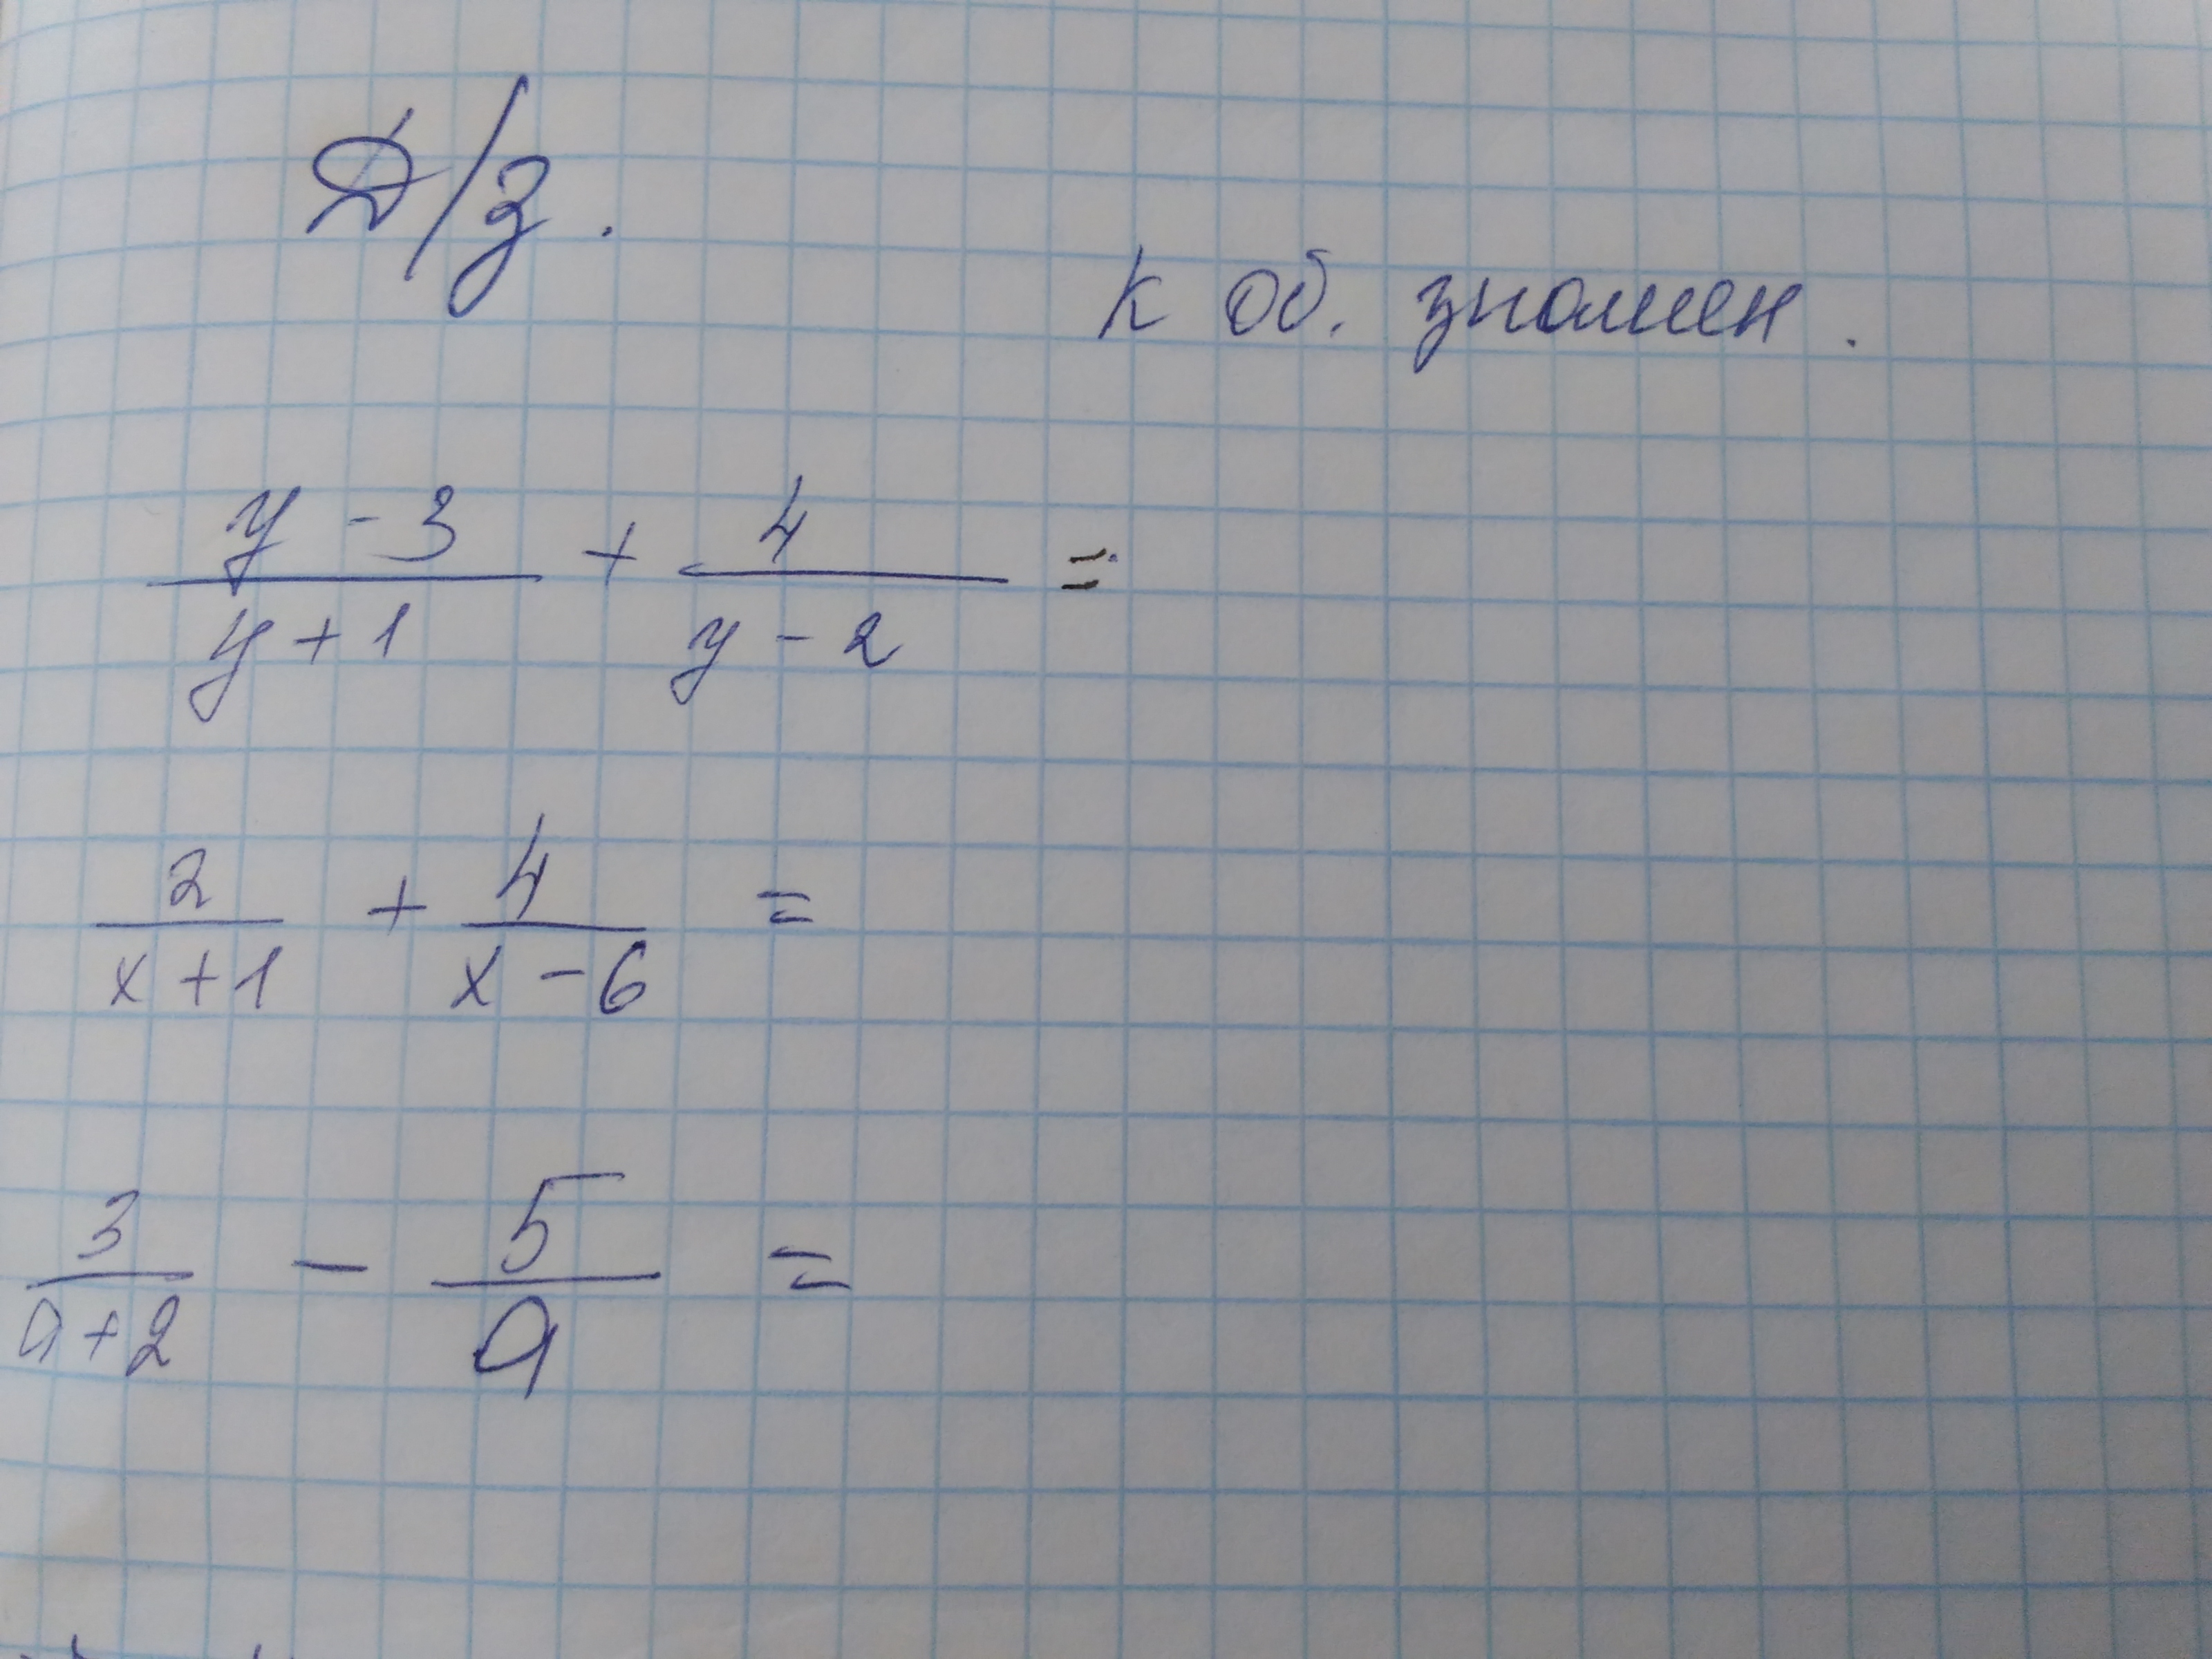 Д/з.
к об. знамен.
y - 3 / y + 1 + 4 / y - 2 =
2 / x + 1 + 4 / x - 6 =
3 / a + 2 - 5 / a =